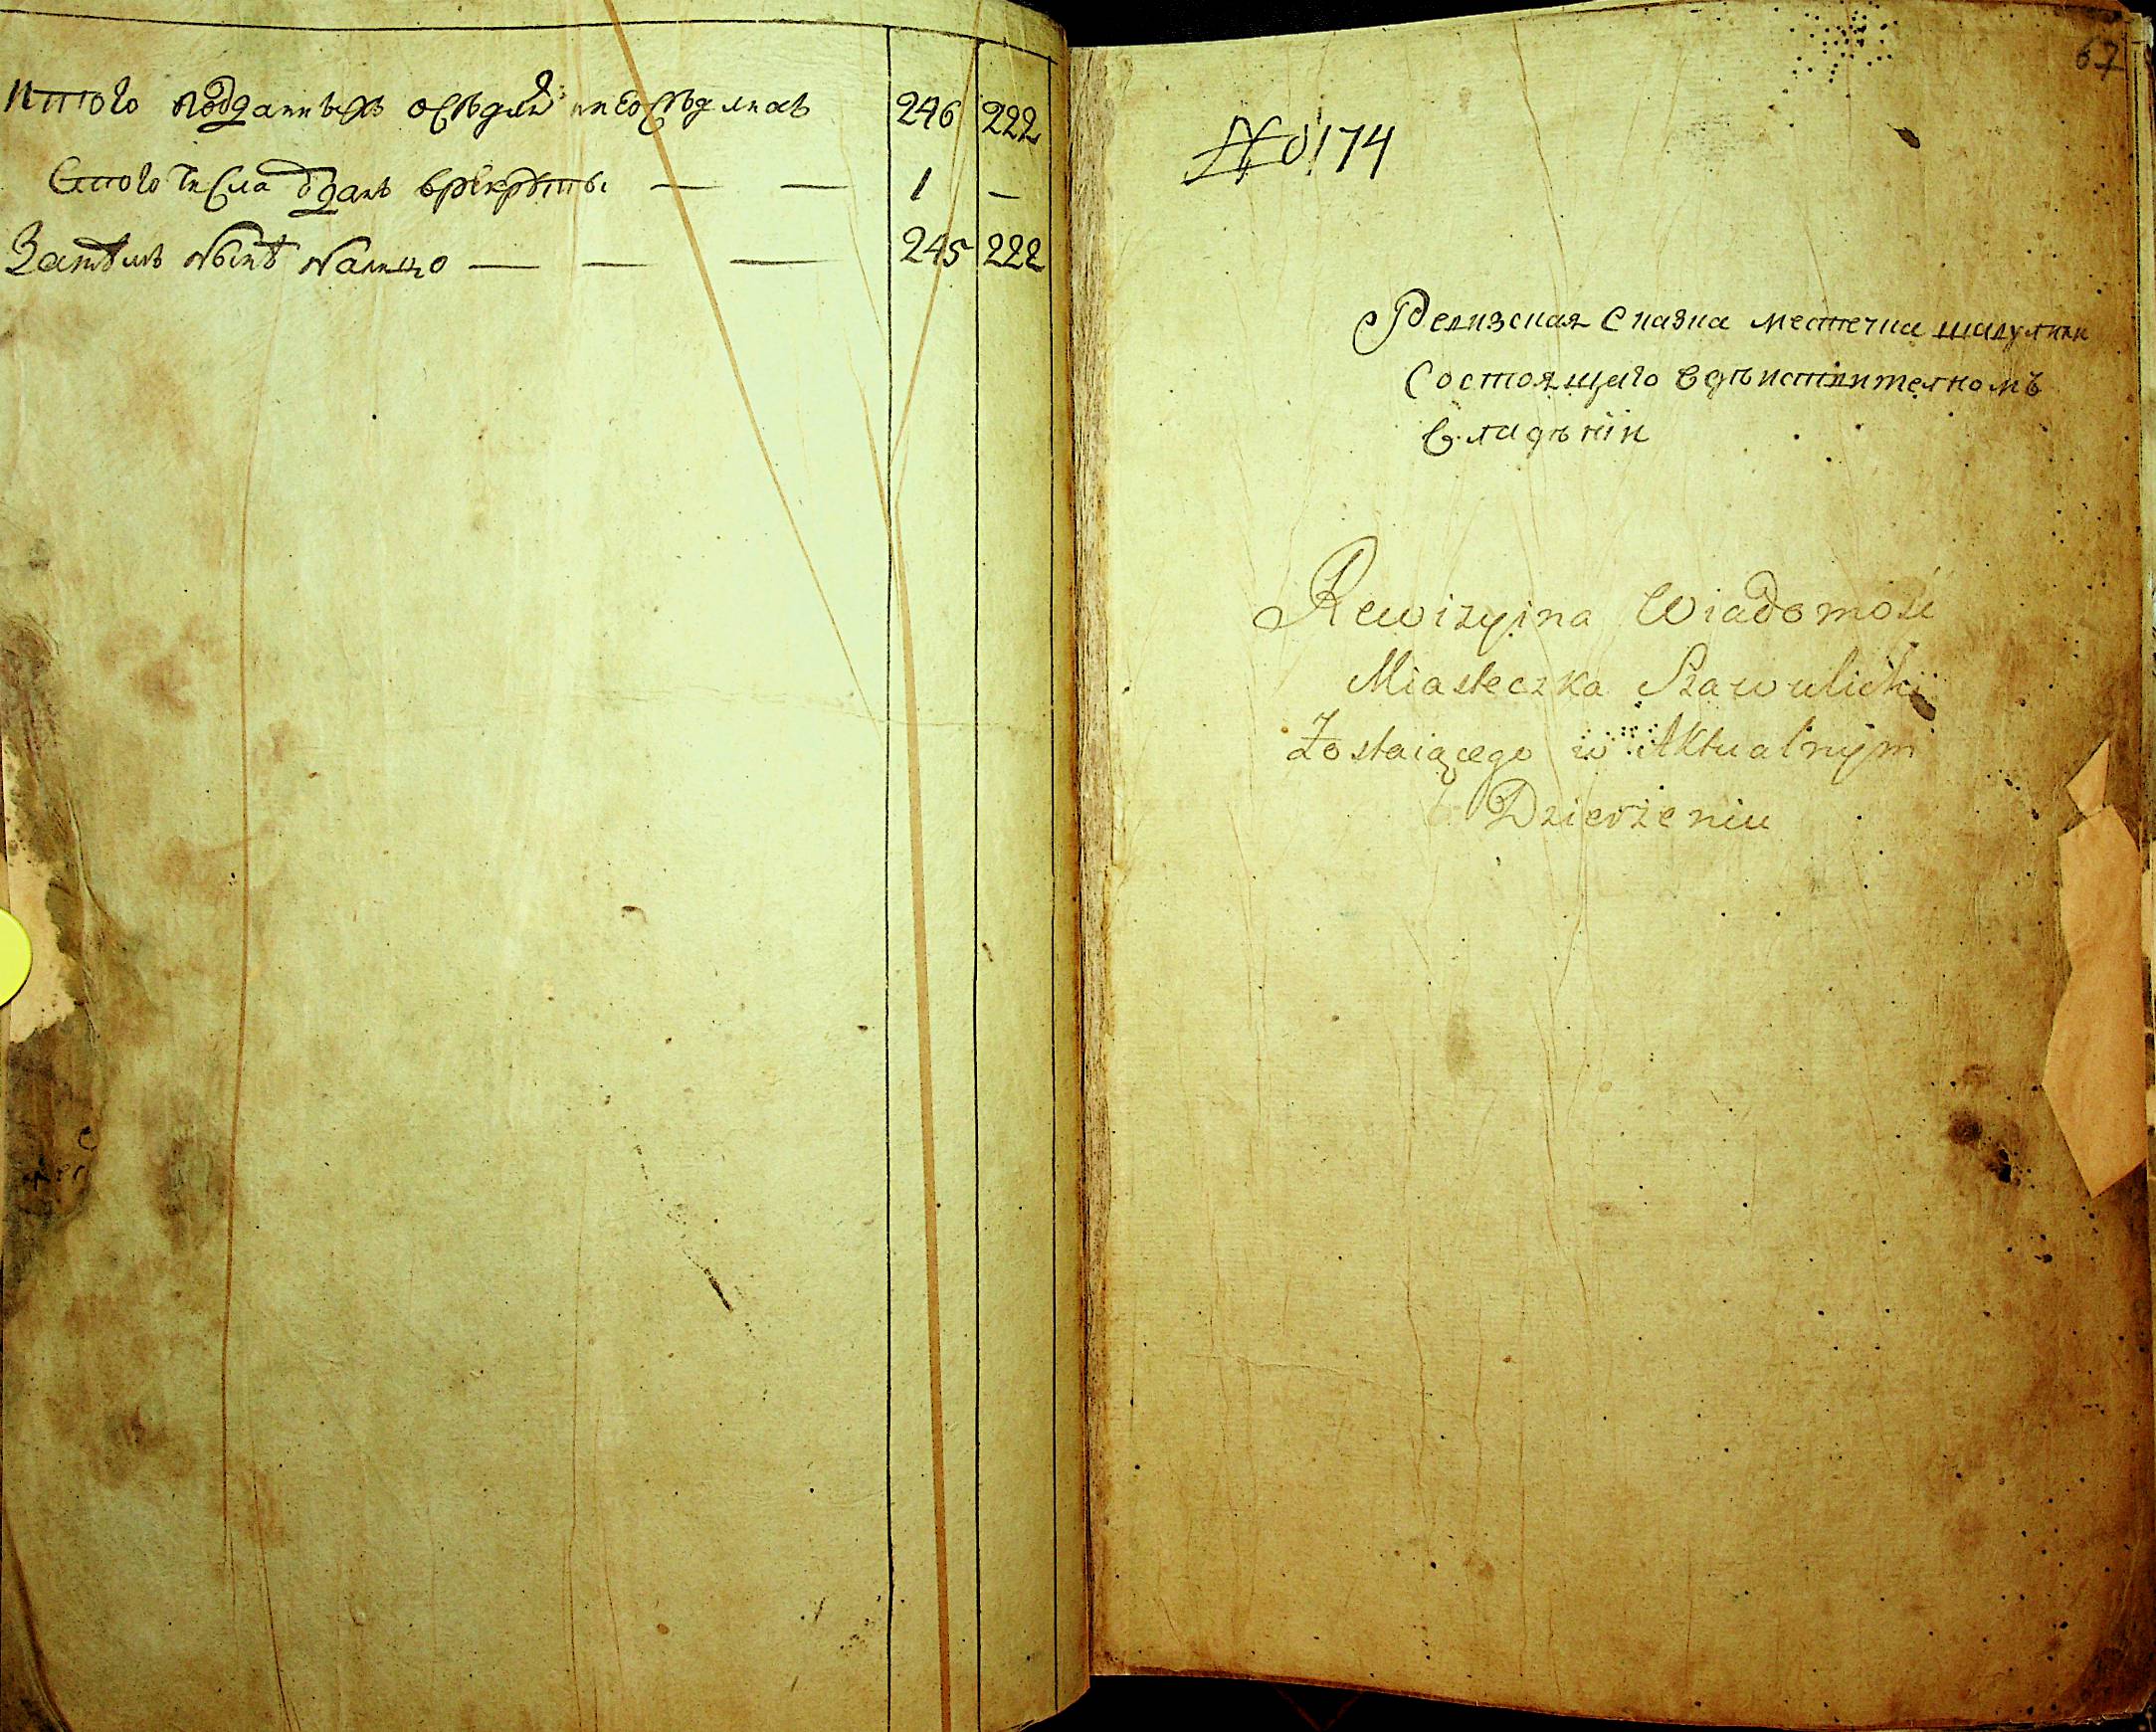 Итого подданныхъ осѣдлы и неосѣдлыхъ 246 222
Стого числа отданъ врекруты — — 1 —
Затѣмъ нынѣ налицо — — — 245 222
67
№ 174
Ревизская Сказка местечка шавулики
Состоящаго вдѣиствителномъ
владѣнïи
Rewizyina Wiadomość
Miasteczka Szawuliki
Zostaiącego w Aktualnym
Dzierżeniu